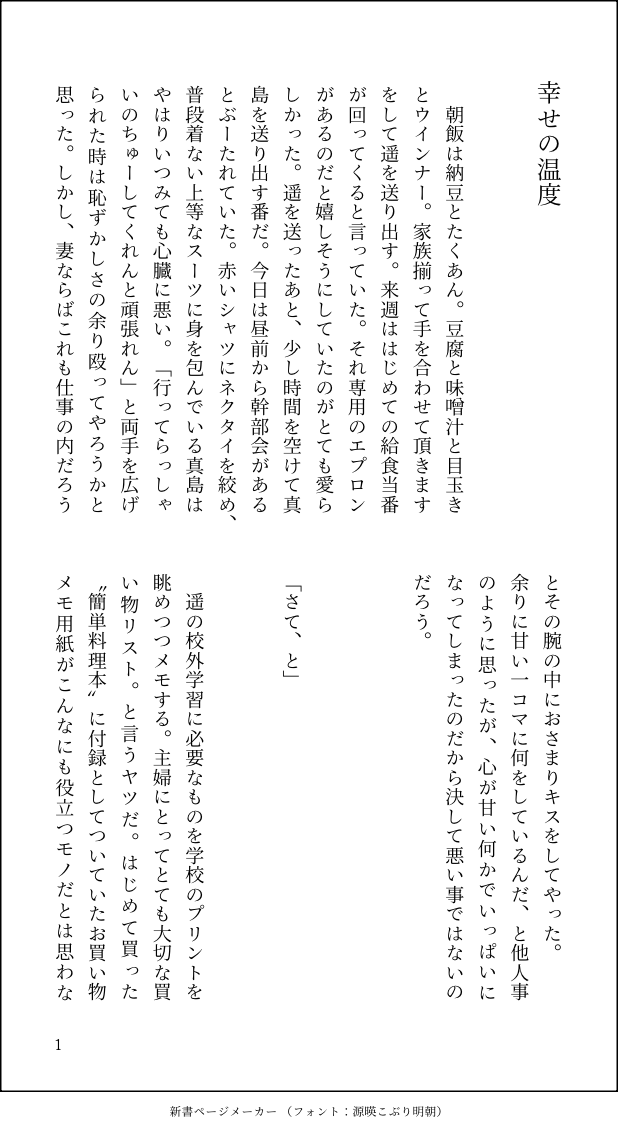 幸せの温度
　朝飯は納豆とたくあん。豆腐と味噌汁と目玉き
とウインナー。家族揃って手を合わせて頂きます
をして遥を送り出す。来週ははじめての給食当番
が回ってくると言っていた。それ専用のエプロン
があるのだと嬉しそうにしていたのがとても愛ら
しかった。遥を送ったあと、少し時間を空けて真
島を送り出す番だ。今日は昼前から幹部会がある
とぶーたれていた。赤いシャツにネクタイを絞め、
普段着ない上等なスーツに身を包んでいる真島は
やはりいつみても心臓に悪い。「行ってらっしゃ
いのちゅーしてくれんと頑張れん」と両手を広げ
られた時は恥ずかしさの余り殴ってやろうかと
思った。しかし、妻ならばこれも仕事の内だろう
とその腕の中におさまりキスをしてやった。
余りに甘い一コマに何をしているんだ、と他人事
のように思ったが、心が甘い何かでいっぱいに
なってしまったのだから決して悪い事ではないの
だろう。
「さて、と」
　遥の校外学習に必要なものを学校のプリントを
眺めつつメモする。主婦にとってとても大切な買
い物リスト。と言うヤツだ。はじめて買った
〝簡単料理本〟に付録としてついていたお買い物
メモ用紙がこんなにも役立つモノだとは思わな
1
新書ページメーカー（フォント：源暎こぶり明朝）